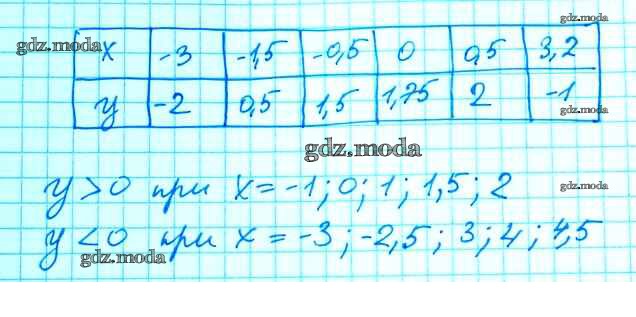 gdz.moda
gdz.moda
x -3 -1,5 -0,5 0 0,5 3,2
y -2 0,5 1,5 1,75 2 -1
gdz.moda
gdz.moda
y > 0 при x = -1; 0; 1; 1,5; 2
gdz.moda
y < 0 при x = -3; -2,5; 3; 4; 4,5
gdz.moda